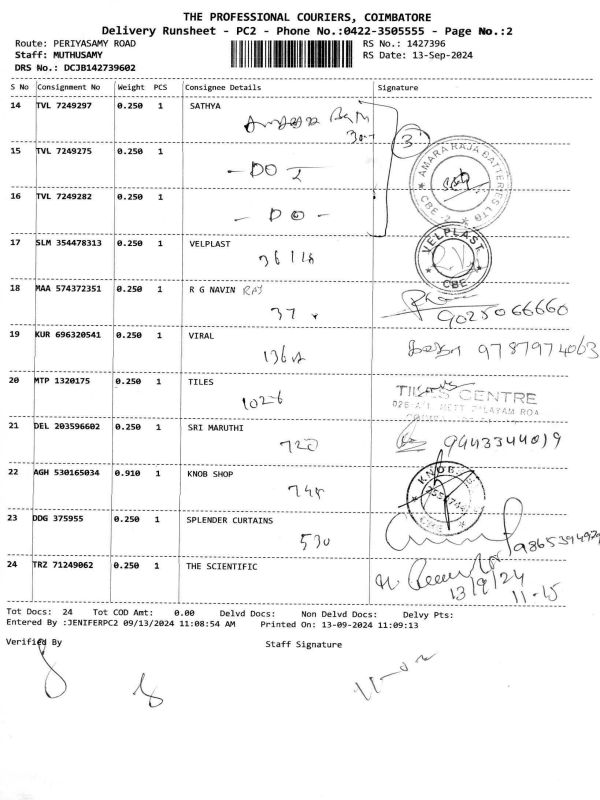 THE PROFESSIONAL COURIERS, COIMBATORE
Delivery Runsheet - PC2 - Phone No.:0422-3505555 - Page No.:2
Route: PERIYASAMY ROAD RS No.: 1427396
Staff: MUTHUSAMY RS Date: 13-Sep-2024
DRS No.: DCJB142739602
S No Consignment No Weight PCS Consignee Details Signature
14 TVL 7249297 0.250 1 SATHYA
3
AMARA RAJA BATTERIES LTD
CBE-2
15 TVL 7249275 0.250 1
- DO
16 TVL 7249282 0.250 1
- DO -
17 SLM 354478313 0.250 1 VELPLAST
VELPLAST
CBE
18 MAA 574372351 0.250 1 R G NAVIN RAJ
37
9025066660
19 KUR 696320541 0.250 1 VIRAL
9787974063
20 MTP 1320175 0.250 1 TILES
1026
TILES CENTRE
21 DEL 203596602 0.250 1 SRI MARUTHI
720
9443344019
22 AGH 530165034 0.910 1 KNOB SHOP
KNOB
23 DDG 375955 0.250 1 SPLENDER CURTAINS
530
24 TRZ 71249062 0.250 1 THE SCIENTIFIC
13/9/24
11-15
Tot Docs: 24 Tot COD Amt: 0.00 Delvd Docs: Non Delvd Docs: Delvy Pts:
Entered By :JENIFERPC2 09/13/2024 11:08:54 AM Printed On: 13-09-2024 11:09:13
Verified By Staff Signature